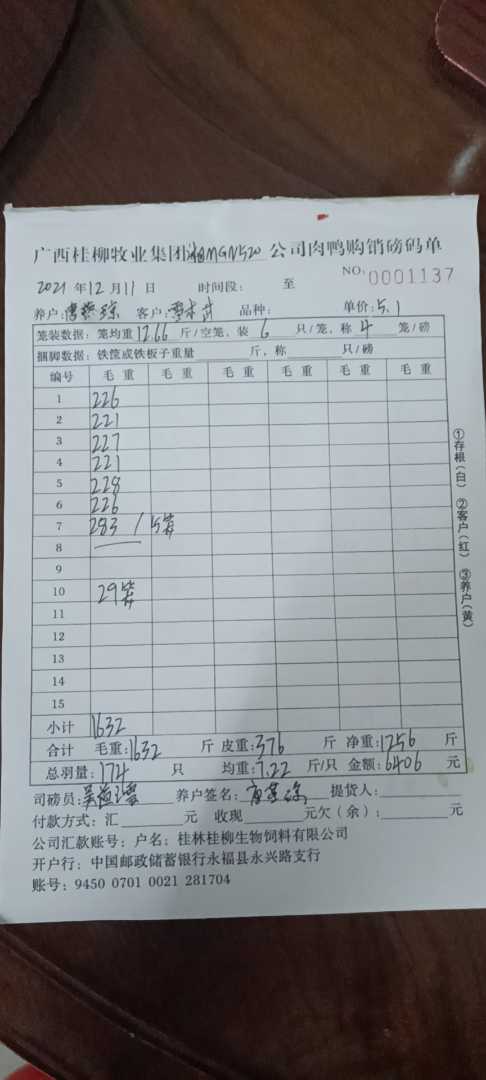 广西桂柳牧业集团 MGN520 公司肉鸭购销磅码单
2021 年 12 月 11 日 时间段: 至 NO: 0001137
养户: 客户: 品种: 单价: 5.1
笼装数据: 笼均重 12.66 斤/空笼, 装 6 只/笼, 称 4 笼/磅
捆脚数据: 铁筐或铁板子重量 斤, 称 只/磅
编号 毛重 毛重 毛重 毛重 毛重 毛重
1 226
2 221
3 227
4 221
5 228
6 226
7 283 / 5笼
8
9
10 29笼
11
12
13
14
15
小计 1632
合计 毛重: 1632 斤 皮重: 376 斤 净重: 1256 斤
总羽量: 174 只 均重: 7.22 斤/只 金额: 6406 元
司磅员: 养户签名: 提货人:
付款方式: 汇 元 收现 元欠(余): 元
公司汇款账号: 户名: 桂林桂柳生物饲料有限公司
开户行: 中国邮政储蓄银行永福县永兴路支行
账号: 9450 0701 0021 281704
①存根(白) ②客户(红) ③养户(黄)